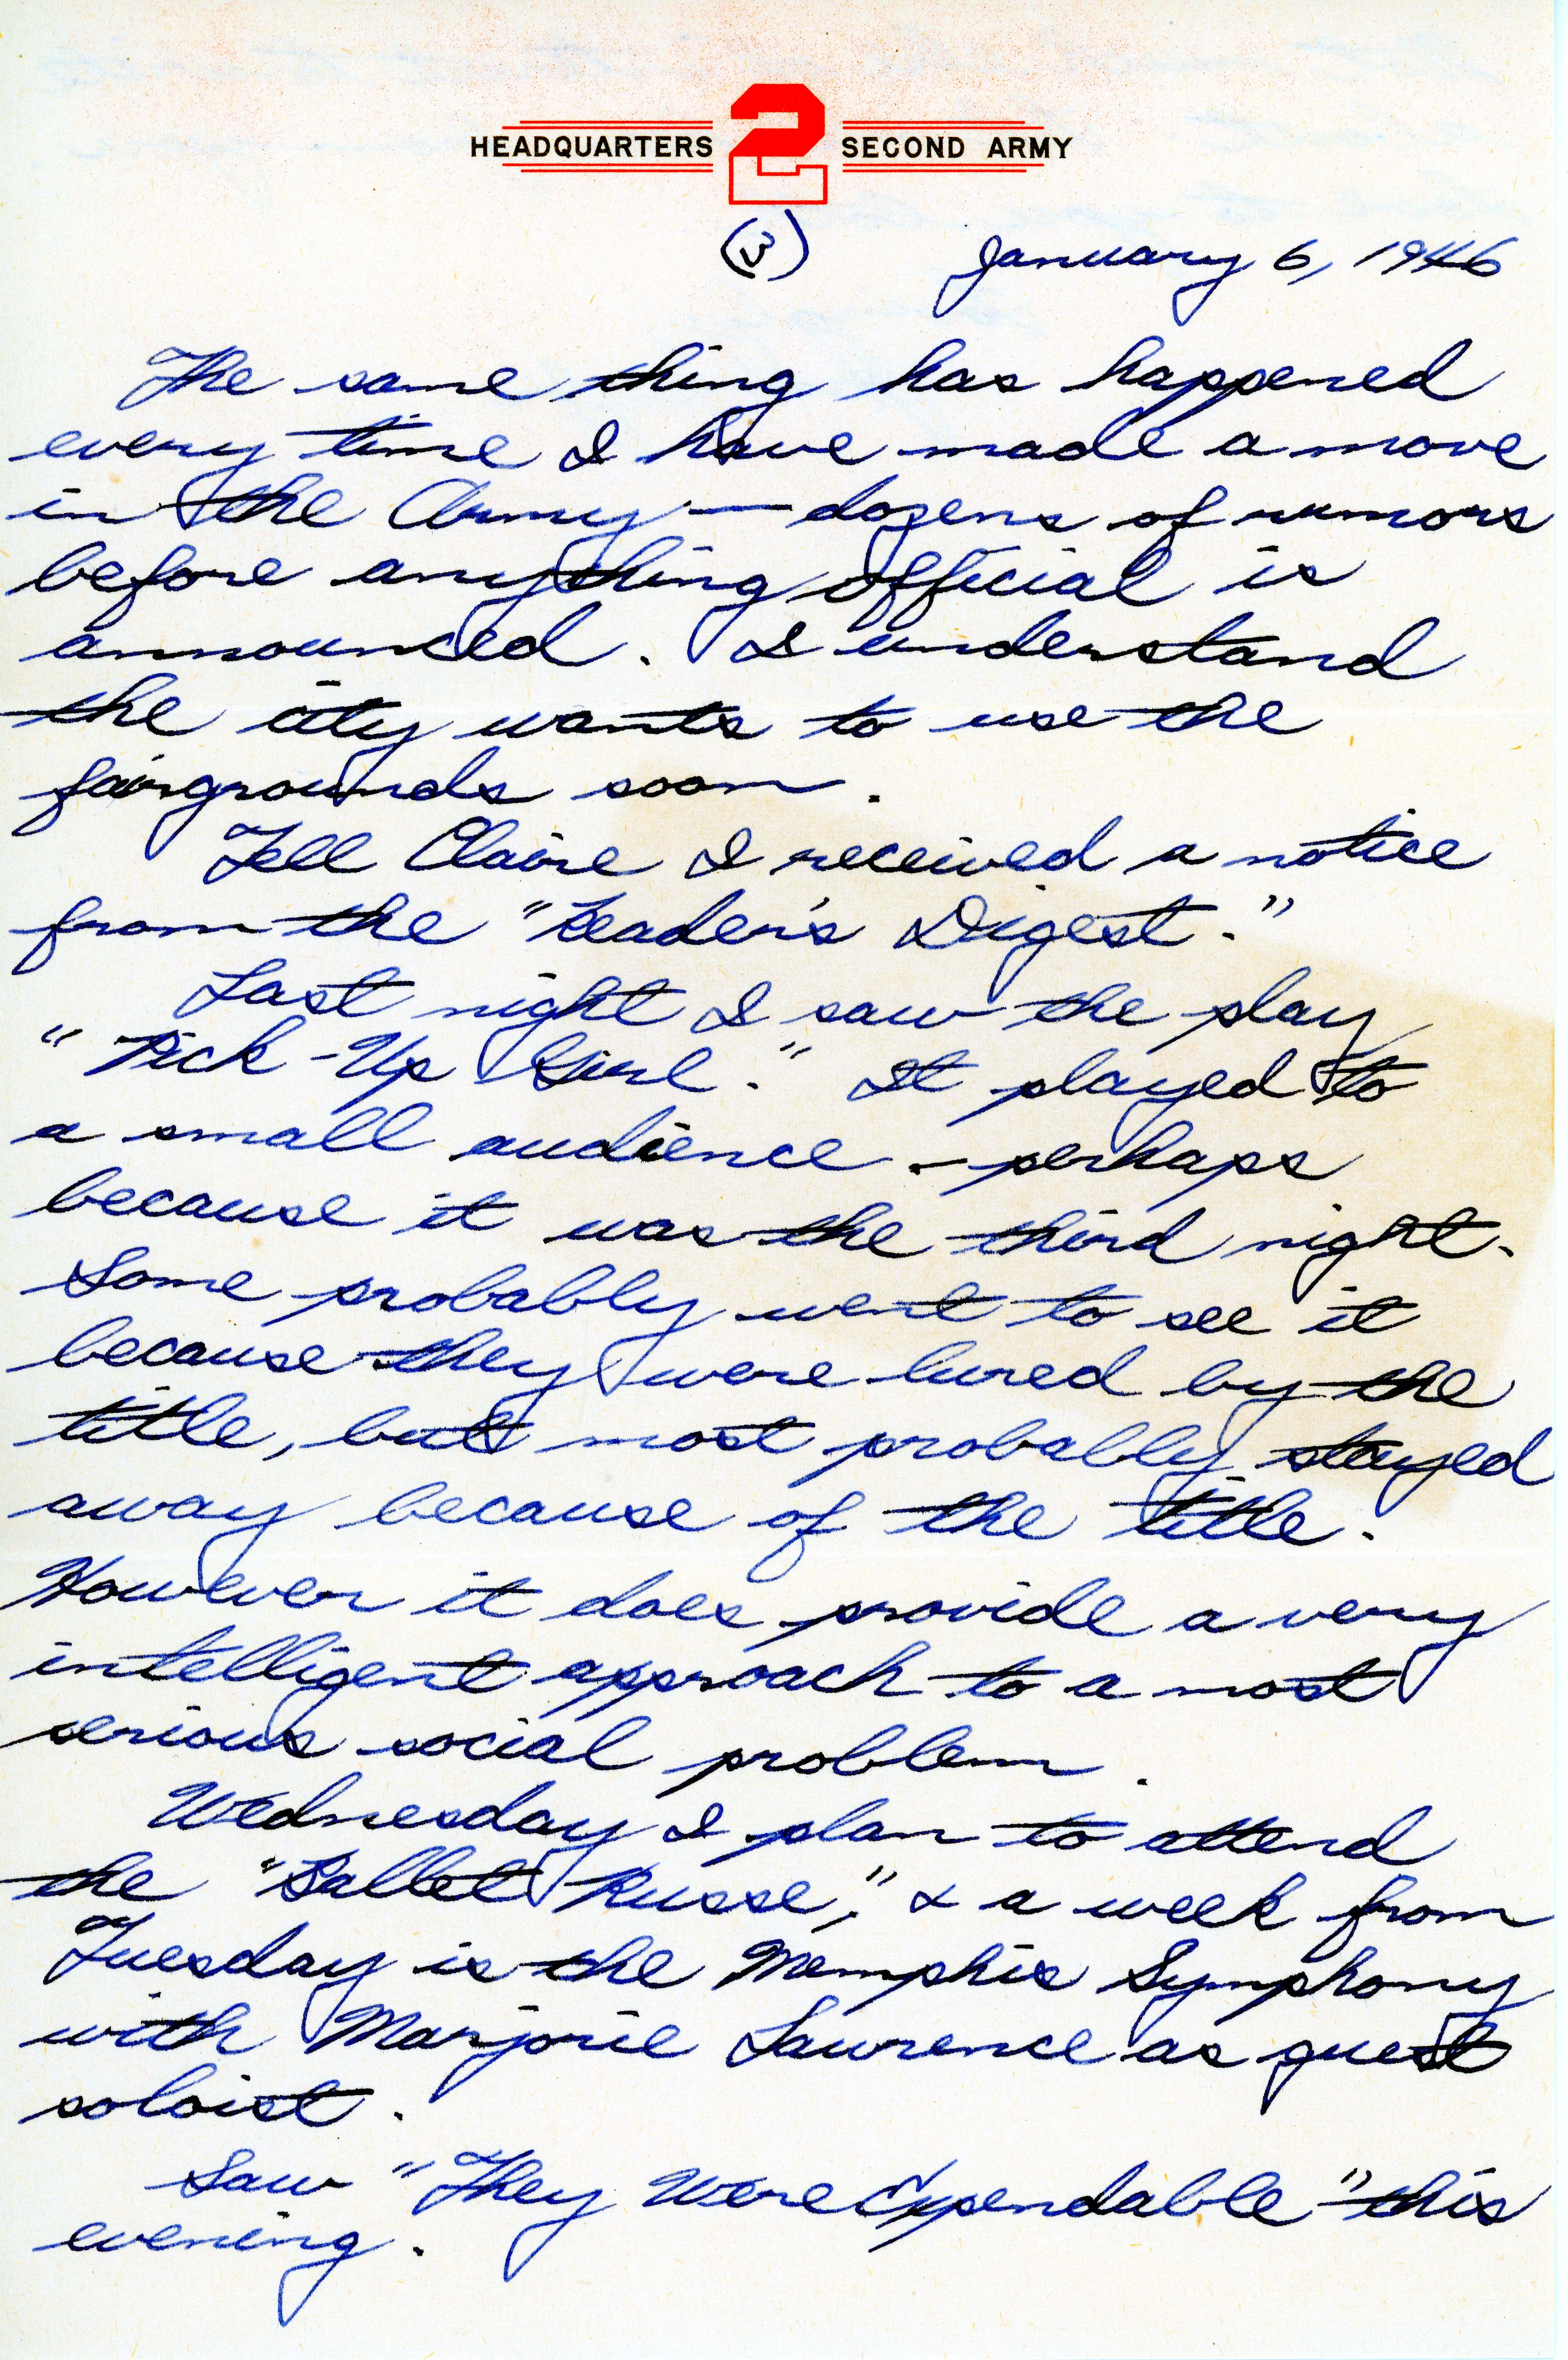 HEADQUARTERS 2 SECOND ARMY
(3)
January 6, 1946
The same thing has happened
every time I have made a move
in the Army — dozens of rumors
before anything official is
announced. I understand
the city wants to use the
fairgrounds soon.
Tell Claire I received a notice
from the "Reader's Digest."
Last night I saw the play
"Pick-Up Girl." It played to
a small audience - perhaps
because it was the third night.
Some probably went to see it
because they were lured by the
title, but most probably stayed
away because of the title.
However it does provide a very
intelligent approach to a most
serious social problem.
Wednesday I plan to attend
the "Ballet Russe," & a week from
Tuesday is the Memphis Symphony
with Marjorie Lawrence as guest
soloist.
Saw "They Were Expendable" this
evening.